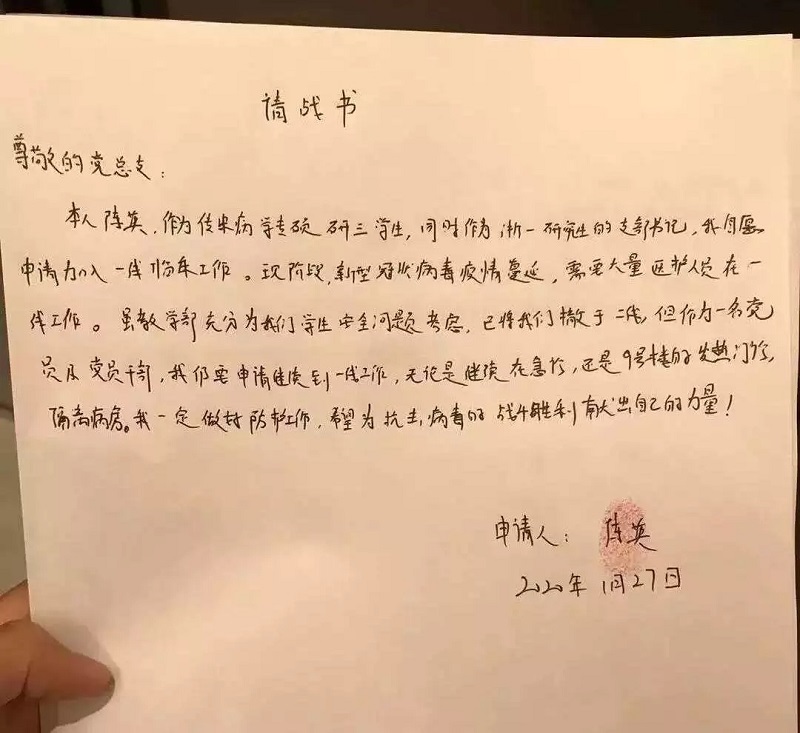 请战书
尊敬的党总支：
本人陈英，作为传染病学专硕研三学生，同时作为浙一研究生的支部书记，我自愿
申请加入一线临床工作。现阶段，新型冠状病毒疫情蔓延，需要大量医护人员在一
线工作。虽教学部充分为我们学生安全问题考虑，已将我们撤于二线，但作为一名党
员及党员干部，我仍要申请继续到一线工作，无论是继续在急诊，还是9号楼的发热门诊，
隔离病房。我一定做好防护工作，希望为抗击病毒的战斗胜利献出自己的力量！
申请人：陈英
二〇二〇年1月27日